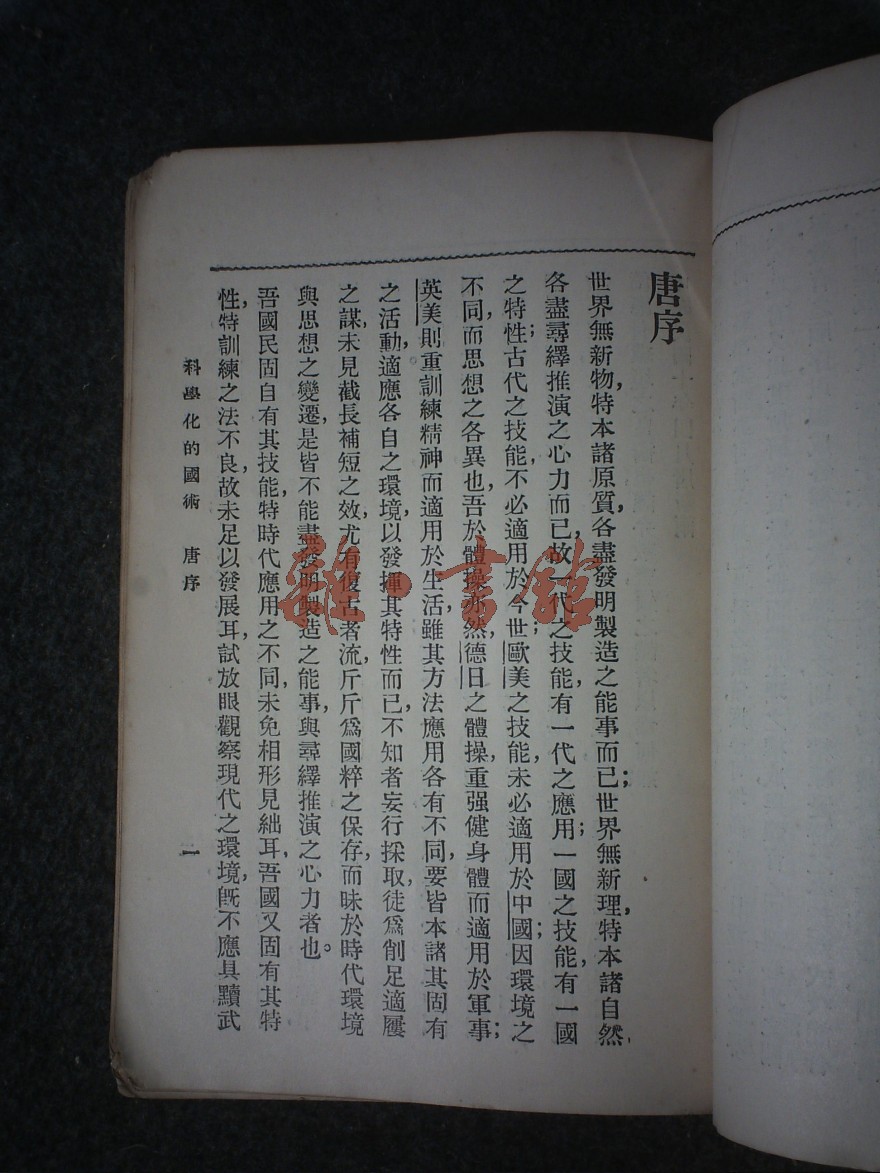 唐序
世界無新物，特本諸原質，各盡發明製造之能事而已；世界無新理，特本諸自然
各盡尋繹推演之心力而已，故一代之技能，有一代之應用；一國之技能，有一國
之特性；古代之技能，不必適用於今世；歐美之技能，未必適用於中國；因環境之
不同，而思想之各異也，吾於體操亦然，德日之體操，重强健身體而適用於軍事；
英美則重訓練精神而適用於生活，雖其方法應用各有不同，要皆本諸其固有
之活動，適應各自之環境，以發揮其特性而已，不知者妄行採取，徒爲削足適屨
之謀，未見截長補短之效，尤有復古者流，斤斤爲國粹之保存，而昧於時代環境
與思想之變遷，是皆不能盡發明製造之能事，與尋繹推演之心力者也。
吾國民固自有其技能，特時代應用之不同，未免相形見絀耳，吾國又固有其特
性，特訓練之法不良，故未足以發展耳，試放眼觀察現代之環境，旣不應具黷武
科學化的國術 唐序
一
雜·書館